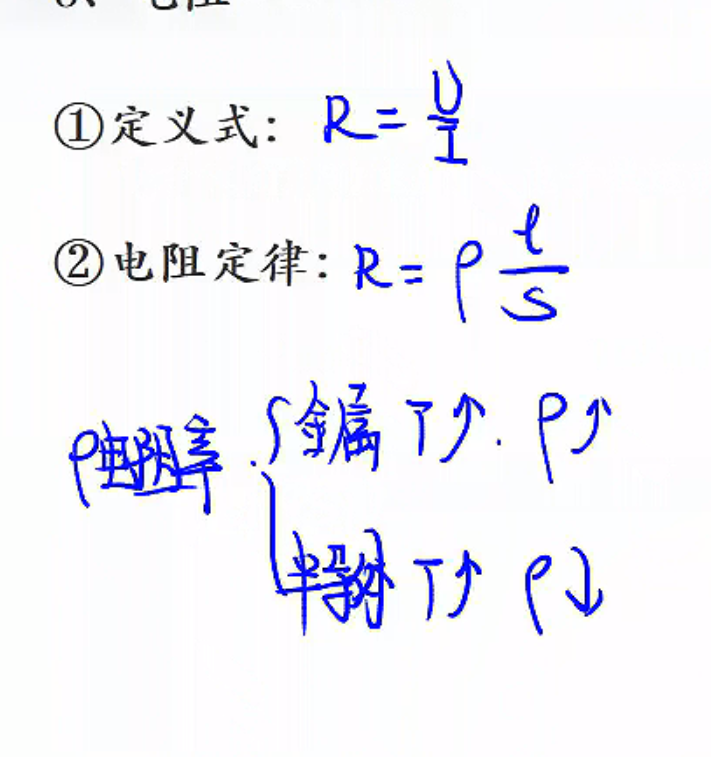 ①定义式: R = U/I
②电阻定律: R = ρ l/S
ρ电阻率 { 金属 T↑. ρ↑
半导体 T↑ ρ↓